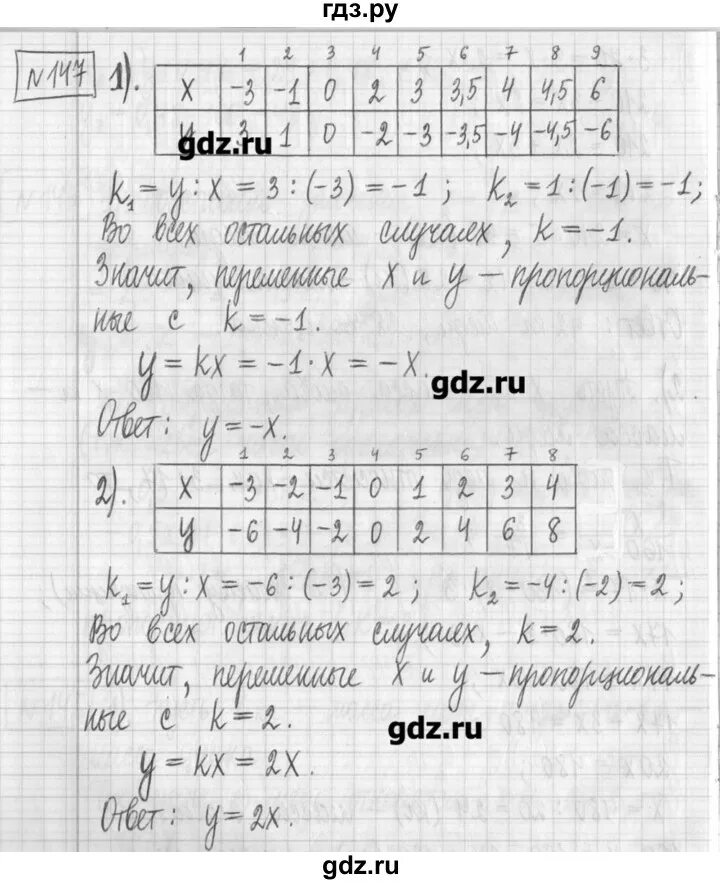 гдз.ру
№147 1).
1 2 3 4 5 6 7 8 9
x -3 -1 0 2 3 3,5 4 4,5 6
y 3 1 0 -2 -3 -3,5 -4 -4,5 -6
gdz.ru
k₁ = y : x = 3 : (-3) = -1 ; k₂ = 1 : (-1) = -1;
Во всех остальных случаех, k = -1.
Значит, переменные x и y – пропорциональ-
ные с k = -1.
y = kx = -1 · x = -x.
gdz.ru
Ответ: y = -x.
1 2 3 4 5 6 7 8
2). x -3 -2 -1 0 1 2 3 4
y -6 -4 -2 0 2 4 6 8
k₁ = y : x = -6 : (-3) = 2 ; k₂ = -4 : (-2) = 2 ;
Во всех остальных случаех, k = 2.
Значит, переменные x и y – пропорциональ-
ные с k = 2.
gdz.ru
y = kx = 2x.
Ответ: y = 2x.
gdz.ru